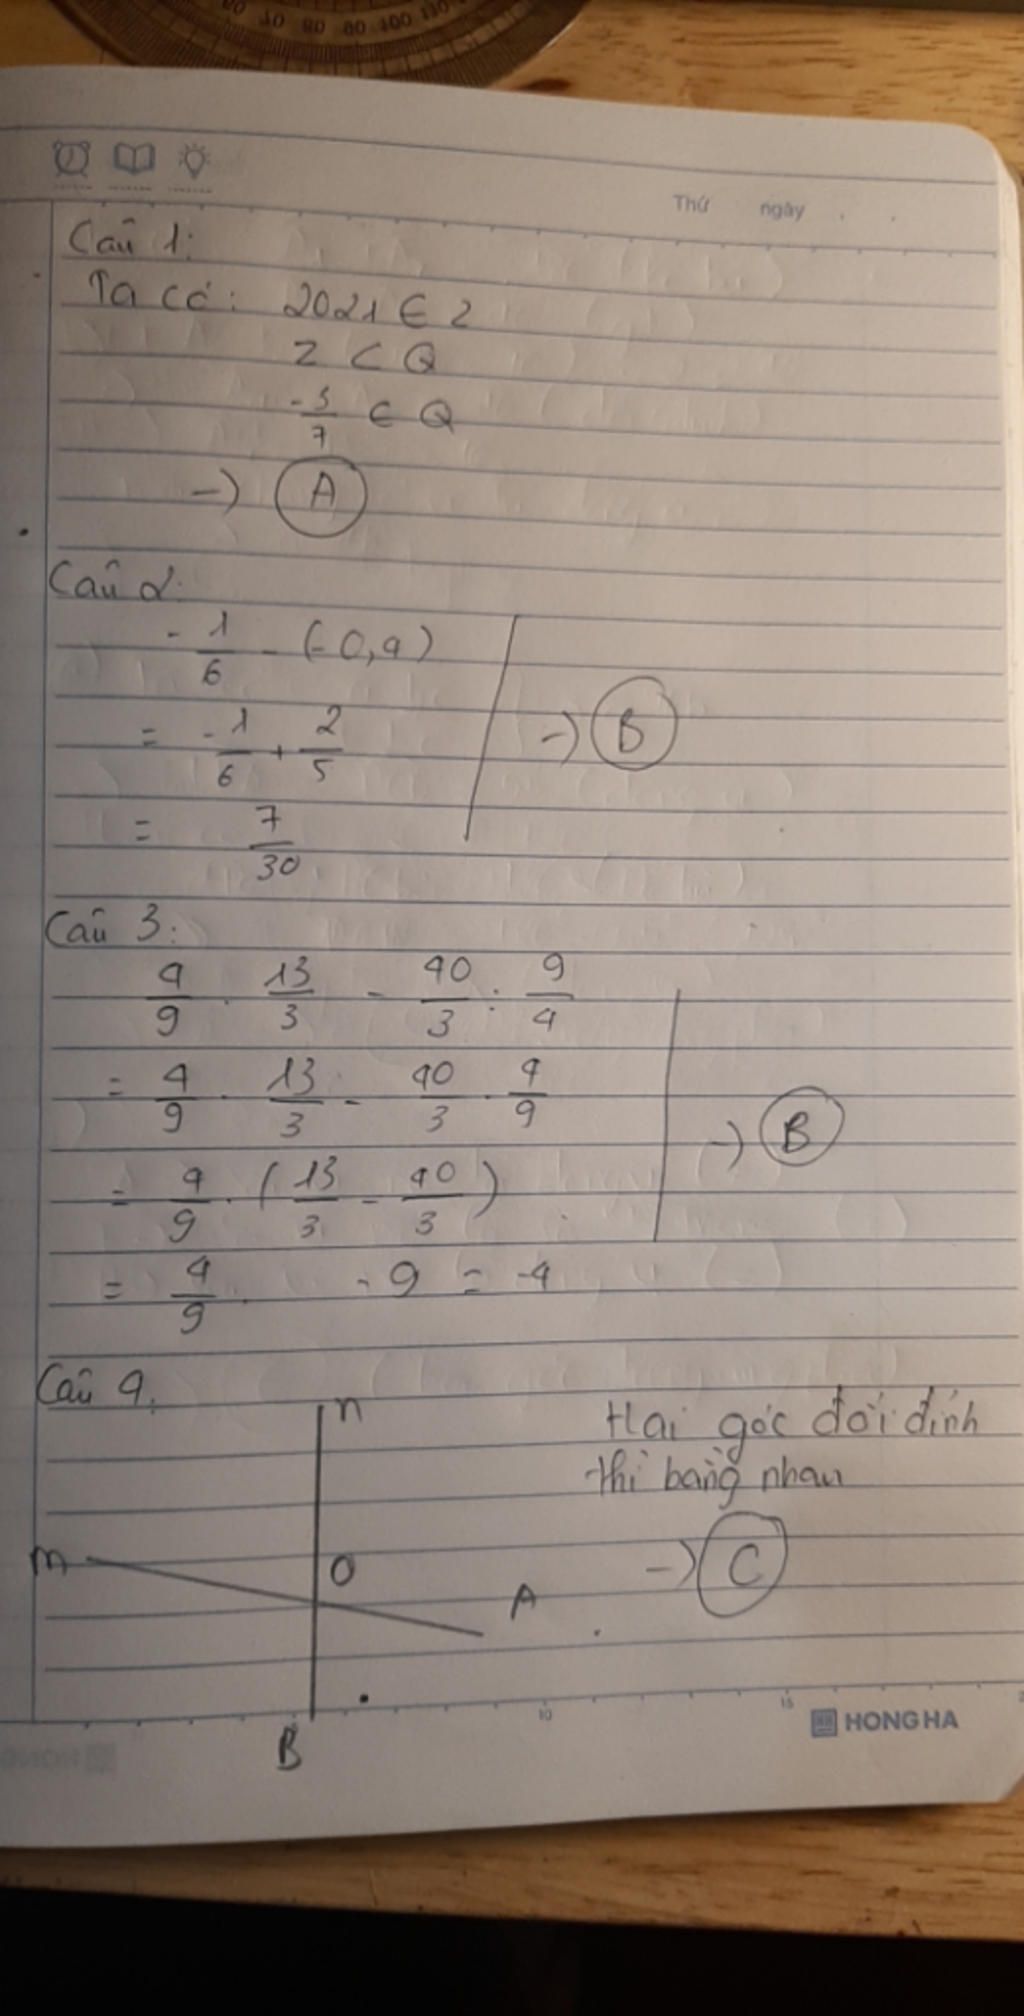 Thứ ngày
Câu 1:
Ta có: 2021 ∈ Z
Z ⊂ Q
-5/7 ∈ Q
-) A
Câu 2:
-1/6 - (-0,4)
= -1/6 + 2/5
-) B
= 7/30
Câu 3:
4/9 . 13/3 - 40/3 : 9/4
= 4/9 . 13/3 - 40/3 . 4/9
-) B
= 4/9 . (13/3 - 40/3)
= 4/9 . -9 = -4
Câu 4.
n
Hai góc đối đỉnh
thì bằng nhau
m
O
A
-) C
B
10 15
HONG HA